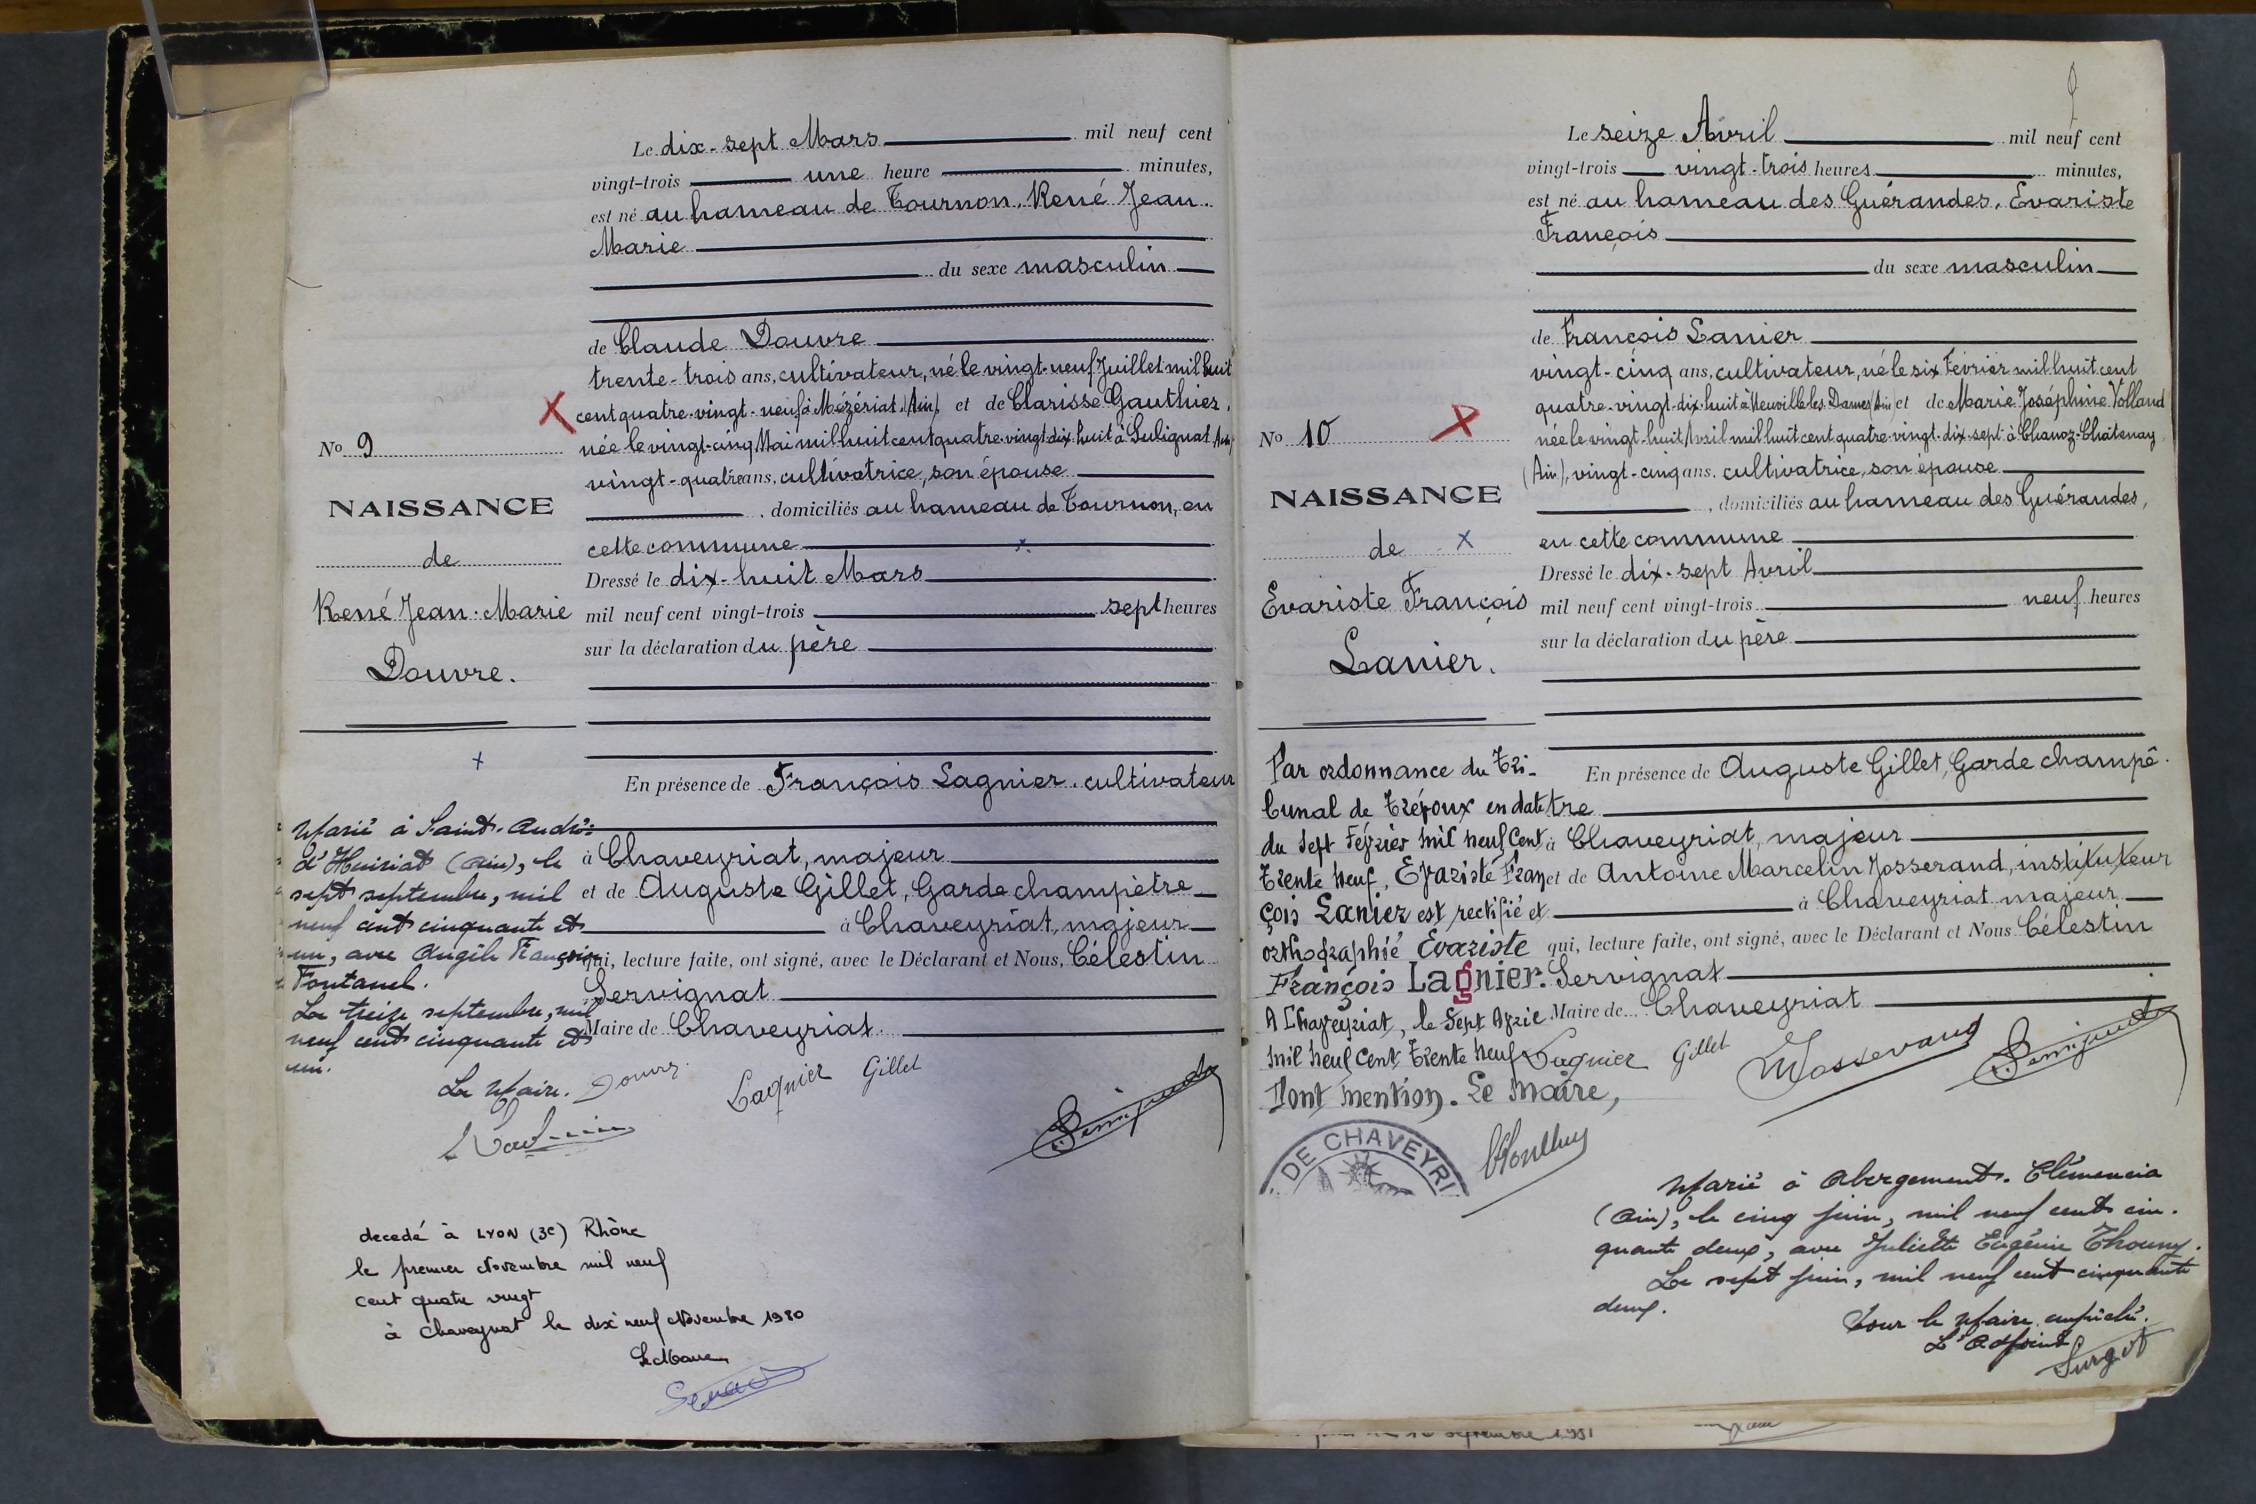 Le dix-sept Mars mil neuf cent
vingt-trois une heure minutes,
est né au hameau de Tournon, René Jean-
Marie
du sexe masculin
de Claude Douvre
trente-trois ans, cultivateur, né le vingt-neuf Juillet mil huit
cent quatre-vingt-neuf à Mézériat (Ain) et de Clarisse Gauthier,
née le vingt-cinq Mai mil huit cent quatre-vingt-dix-huit à Sulignat (Ain)
vingt-quatre ans, cultivatrice, son épouse
, domiciliés au hameau de Tournon, en
cette commune
Dressé le dix-huit Mars
mil neuf cent vingt-trois sept heures
sur la déclaration du père
En présence de François Lagnier, cultivateur
à Chaveyriat, majeur
et de Auguste Gillet, Garde champêtre
à Chaveyriat, majeur
qui, lecture faite, ont signé, avec le Déclarant et Nous, Célestin
Servignat
Maire de Chaveyriat
No 9
NAISSANCE
de
René Jean-Marie
Douvre.
Marié à Saint-André-
d'Huiriat (Ain), le
sept septembre, mil
neuf cent cinquante et
un, avec Angèle Françoise
Fontanel.
Le treize septembre, mil
neuf cent cinquante et
un.
Le Maire.
Douvre
Lagnier Gillet
decedé à LYON (3e) Rhône
le premier Novembre mil neuf
cent quatre vingt
à Chaveyriat le dix neuf Novembre 1980
Le Maire
9
Le seize Avril mil neuf cent
vingt-trois vingt-trois heures minutes,
est né au hameau des Guérandes, Evariste
François
du sexe masculin
de François Lanier
vingt-cinq ans, cultivateur, né le six Février mil huit cent
quatre-vingt-dix-huit à Neuville les Dames (Ain) et de Marie Joséphine Volland
née le vingt-huit Avril mil huit cent quatre-vingt-dix-sept à Chanoz-Châtenay
(Ain), vingt-cinq ans, cultivatrice, son épouse
, domiciliés au hameau des Guérandes,
en cette commune
Dressé le dix-sept Avril
mil neuf cent vingt-trois neuf heures
sur la déclaration du père
En présence de Auguste Gillet, Garde champê-
tre
à Chaveyriat, majeur
et de Antoine Marcelin Josserand, instituteur
à Chaveyriat majeur
qui, lecture faite, ont signé, avec le Déclarant et Nous Célestin
Servignat
Maire de Chaveyriat
No 10
NAISSANCE
de
Evariste François
Lanier.
Par ordonnance du Tri-
bunal de Trévoux en date
du Sept Février mil neuf Cent
Trente neuf, Evariste Fran
çois Lanier est rectifié et
orthographié Evariste
François Lagnier.
A Chaveyriat, le Sept Avril
mil neuf Cent Trente neuf
Dont mention. Le Maire,
Lagnier Gillet
Josserand
DE CHAVEYRI
Marié à Abergement-Clémencia
(Ain), le cinq juin, mil neuf cent cin-
quante deux, avec Juliette Eugénie Thouny.
Le sept juin, mil neuf cent cinquante
deux.
Pour le Maire empêché.
L'Adjoint
Surgot
septembre 1981